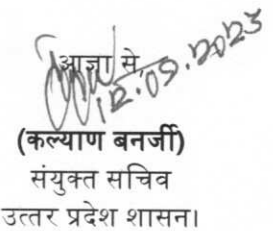 आज्ञा से,
12.05.2023
(कल्याण बनर्जी)
संयुक्त सचिव
उत्तर प्रदेश शासन।